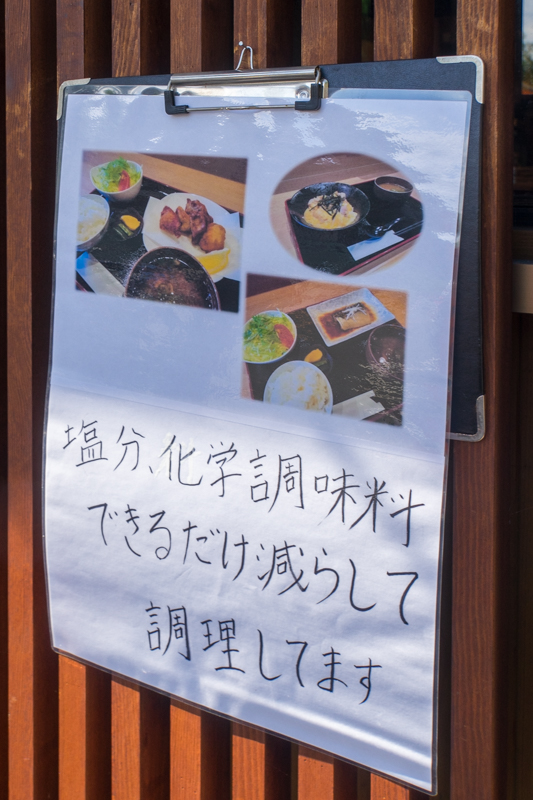 塩分、化学調味料
できるだけ減らして
調理してます